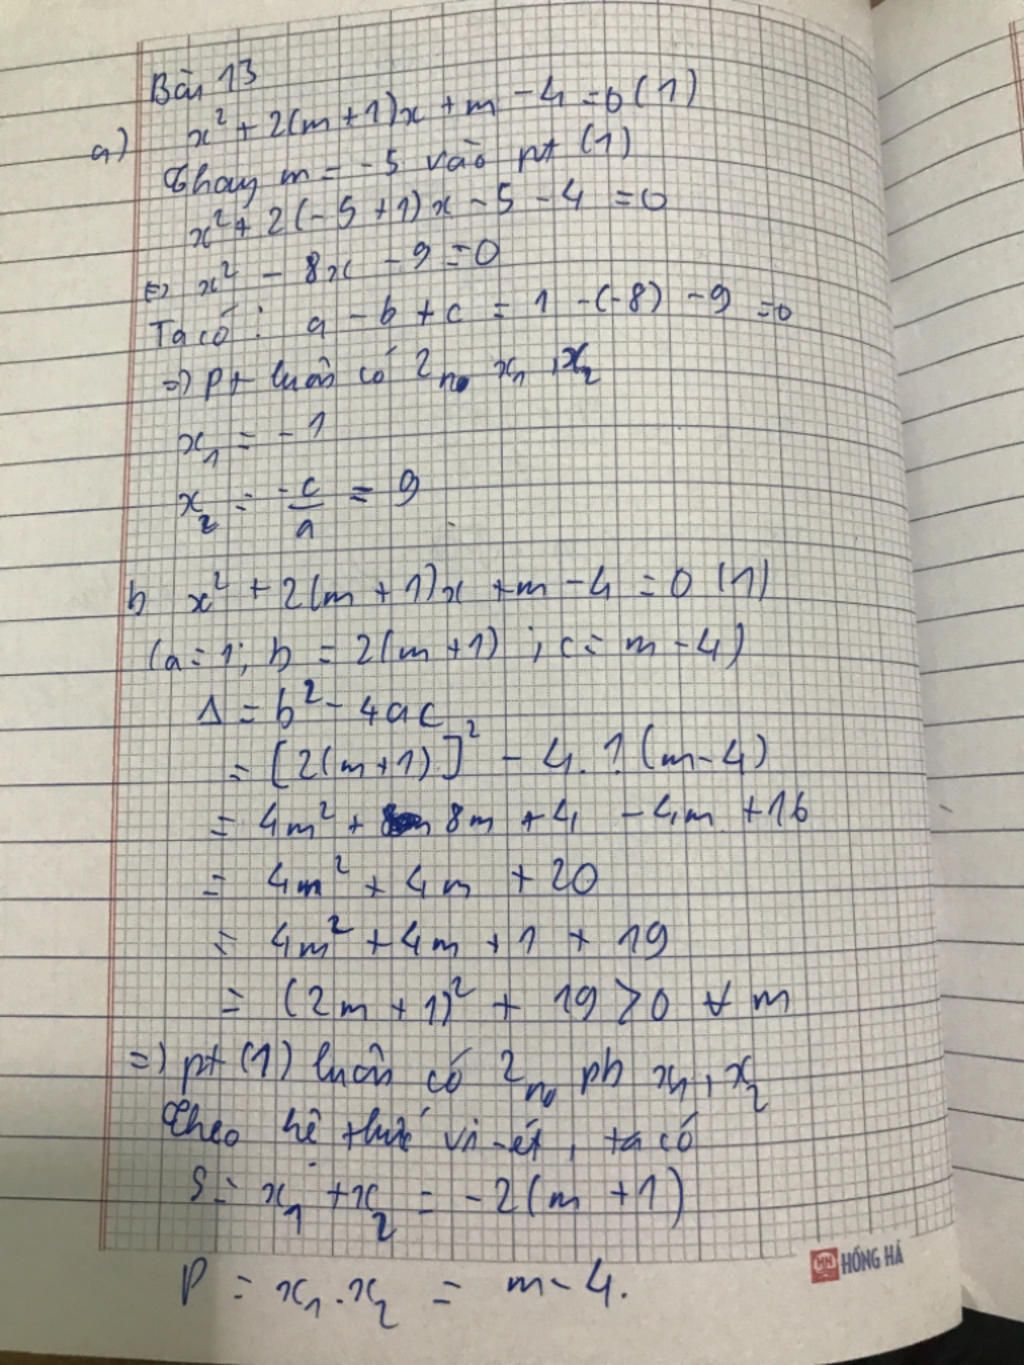 Bài 13
a) x² + 2(m+1)x + m - 4 = 0 (1)
Thay m = -5 vào pt (1)
x² + 2(-5+1)x - 5 - 4 = 0
⇔ x² - 8x - 9 = 0
Ta có : a - b + c = 1 - (-8) - 9 = 0
=> pt luôn có 2 no x₁, x₂
x₁ = -1
x₂ = -c/a = 9
b x² + 2(m+1)x + m - 4 = 0 (1)
(a = 1; b = 2(m+1) ; c = m - 4)
Δ = b² - 4ac
= [2(m+1)]² - 4.1(m-4)
= 4m² + 8m + 4 - 4m + 16
= 4m² + 4m + 20
= 4m² + 4m + 1 + 19
= (2m + 1)² + 19 > 0 ∀ m
=> pt (1) luôn có 2 no pb x₁, x₂
Theo hệ thức vi-ét, ta có
S = x₁ + x₂ = -2(m+1)
HỒNG HÀ
P = x₁ . x₂ = m - 4.